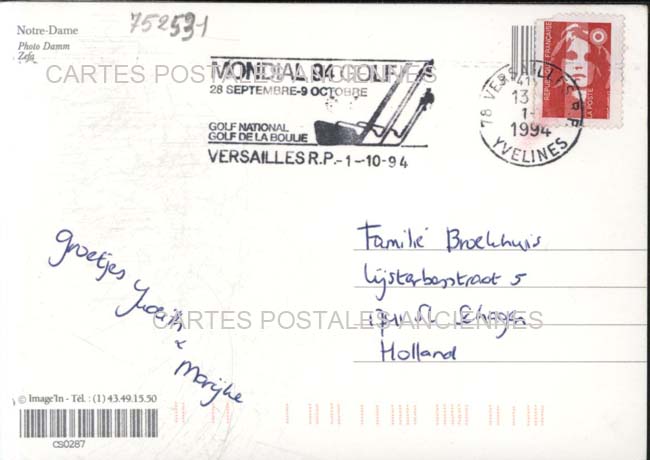 752531
Notre-Dame
Photo Damm
Zefa
CARTES POSTALES ANCIENNES
MONDIAL 94 GOLF
28 SEPTEMBRE-9 OCTOBRE
GOLF NATIONAL
GOLF DE LA BOULIE
VERSAILLES R.P.-1-10-94
78 VERSAILLES R.P.
13
1-
1994
YVELINES
REPUBLIQUE FRANÇAISE
LA POSTE
Familie Broekhuis
Lijsterbesstraat 5
Holland
groetjes
& Marijke
CARTES POSTALES ANCIENNES
© Image'In - Tél. : (1) 43.49.15.50
CS0287